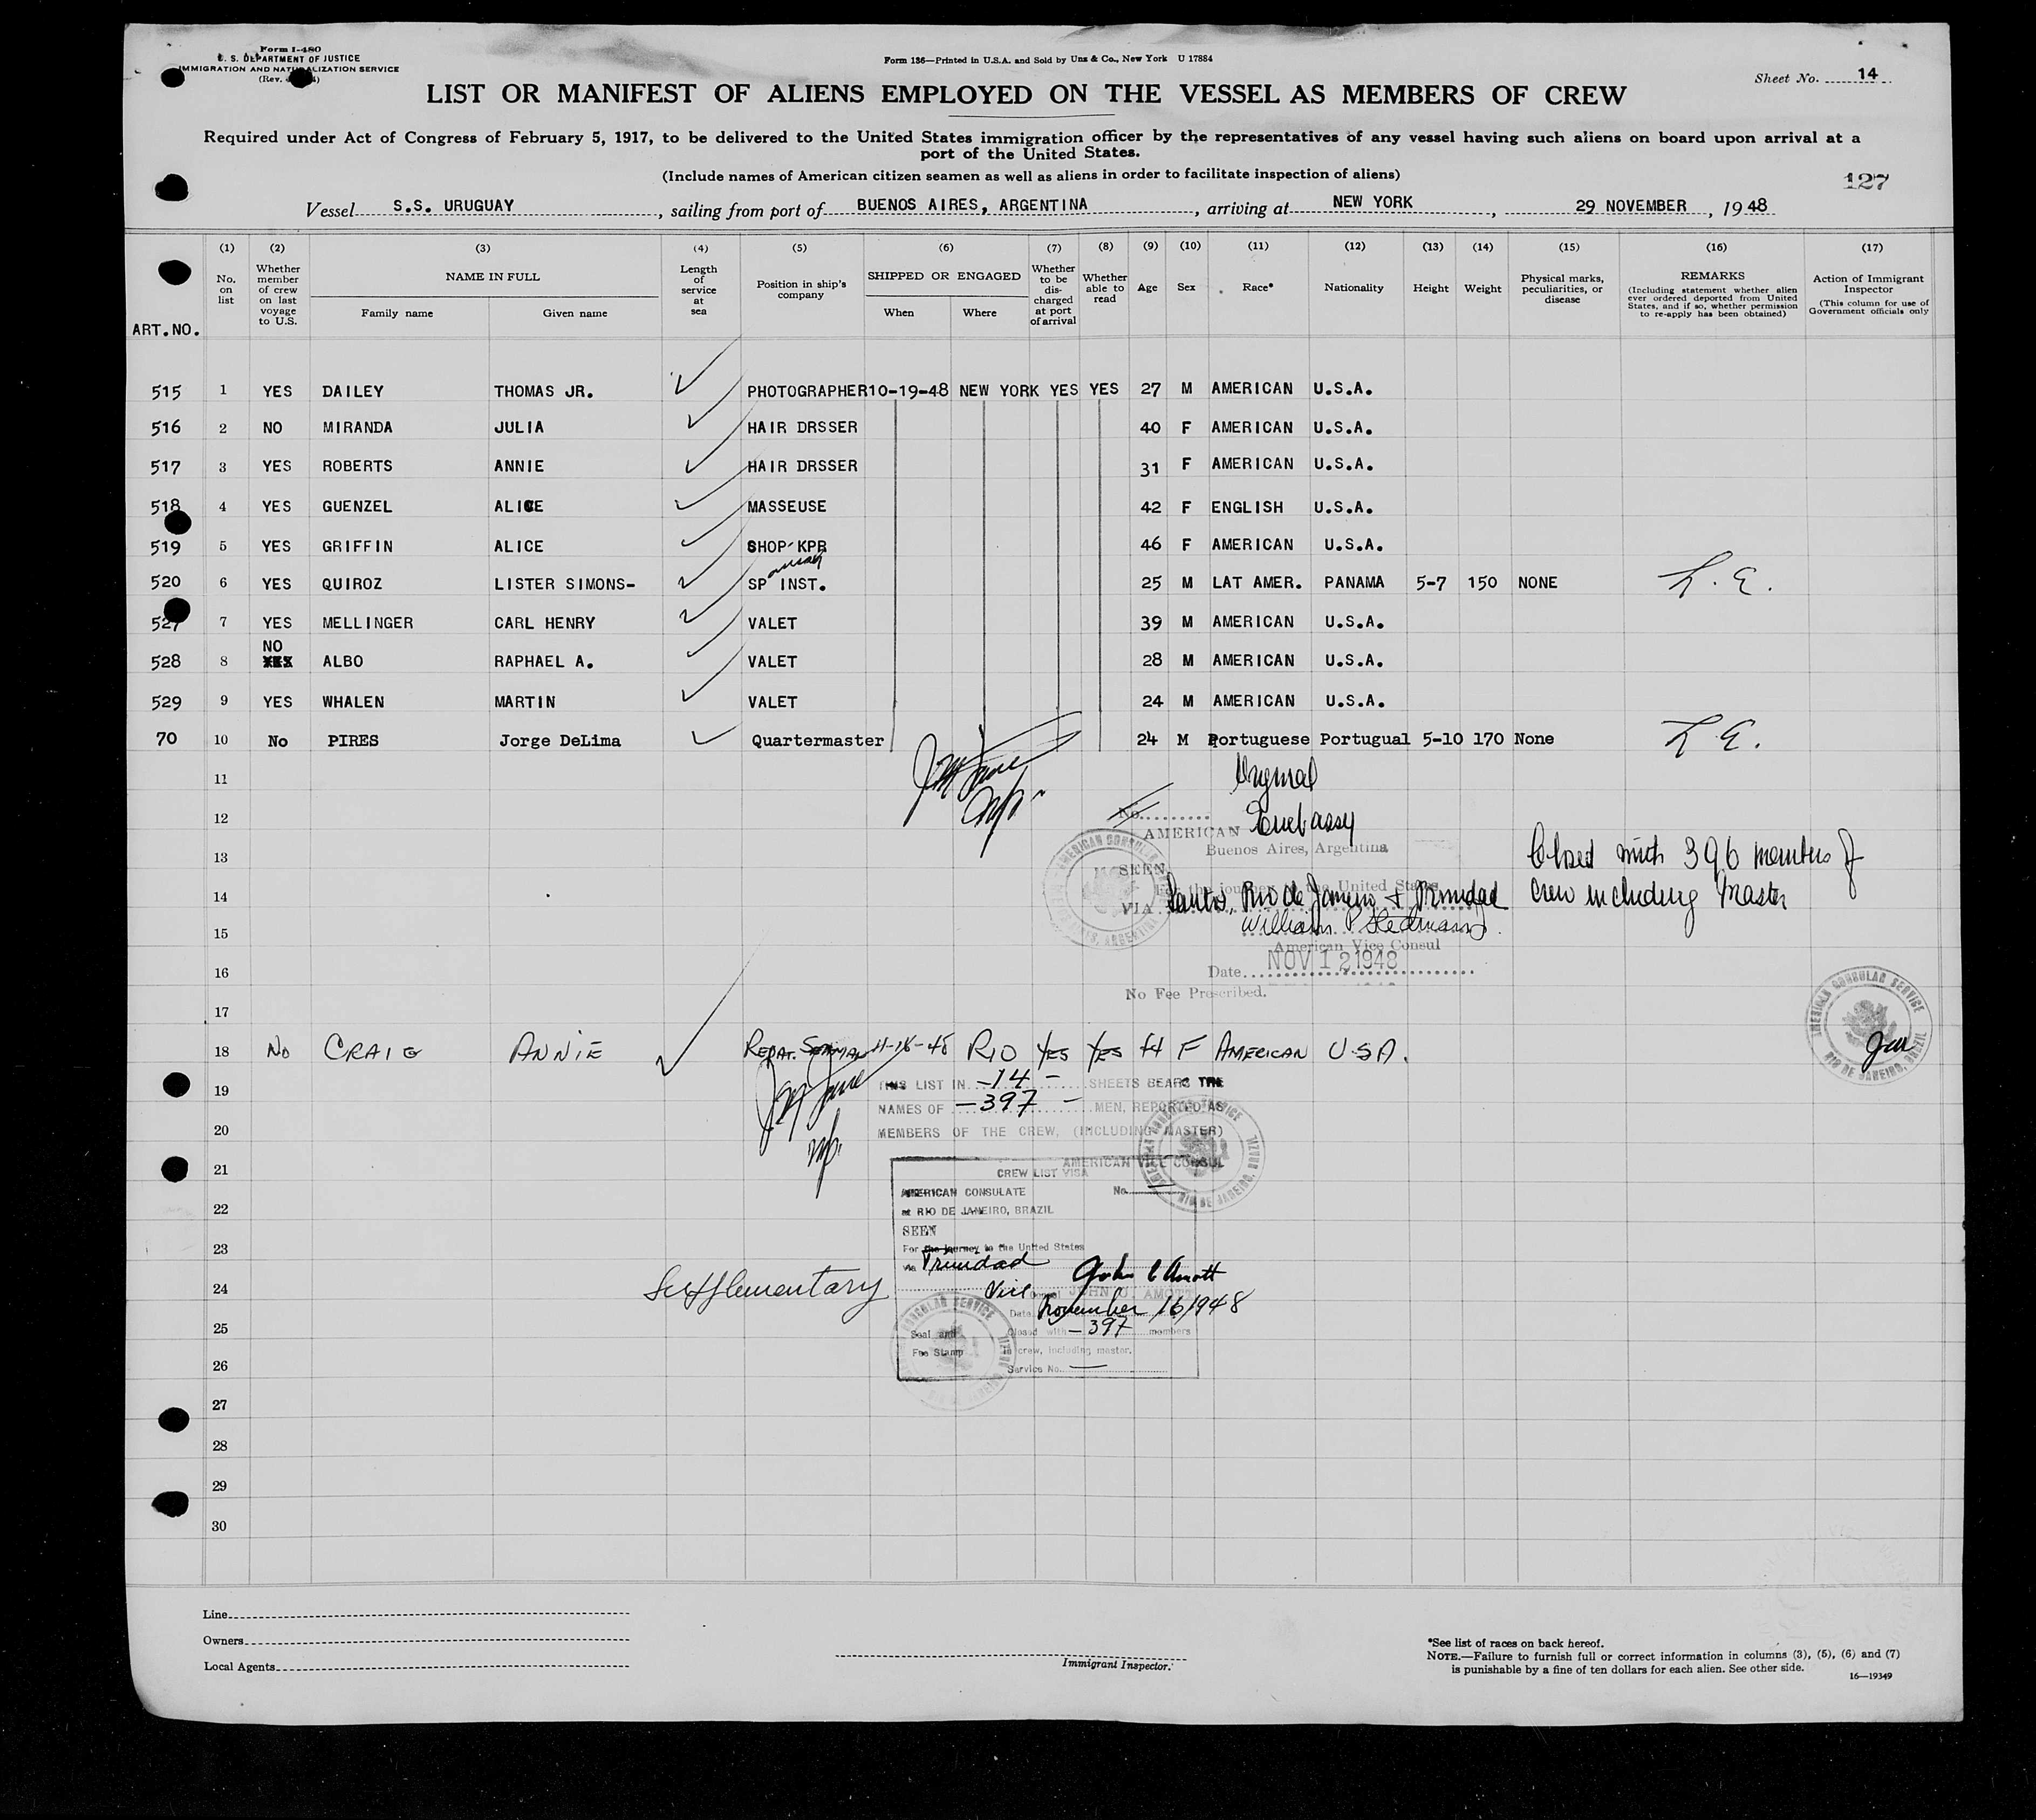 Form I-480
U. S. DEPARTMENT OF JUSTICE
IMMIGRATION AND NATURALIZATION SERVICE
(Rev.
Form 136—Printed in U.S.A. and Sold by Unz & Co., New York U 17884
Sheet No. 14
LIST OR MANIFEST OF ALIENS EMPLOYED ON THE VESSEL AS MEMBERS OF CREW
Required under Act of Congress of February 5, 1917, to be delivered to the United States immigration officer by the representatives of any vessel having such aliens on board upon arrival at a
port of the United States.
(Include names of American citizen seamen as well as aliens in order to facilitate inspection of aliens)
127
Vessel S.S. URUGUAY, sailing from port of BUENOS AIRES, ARGENTINA, arriving at NEW YORK, 29 NOVEMBER, 1948
ART.NO.
(1) No. on list
(2) Whether member of crew on last voyage to U.S.
(3) NAME IN FULL
Family name
Given name
(4) Length of service at sea
(5) Position in ship's company
(6) SHIPPED OR ENGAGED
When
Where
(7) Whether to be discharged at port of arrival
(8) Whether able to read
(9) Age
(10) Sex
(11) Race*
(12) Nationality
(13) Height
(14) Weight
(15) Physical marks, peculiarities, or disease
(16) REMARKS
(Including statement whether alien ever ordered deported from United States, and if so, whether permission to re-apply has been obtained)
(17) Action of Immigrant Inspector
(This column for use of Government officials only
515 1 YES DAILEY THOMAS JR. PHOTOGRAPHER 10-19-48 NEW YORK YES YES 27 M AMERICAN U.S.A.
516 2 NO MIRANDA JULIA HAIR DRSSER 40 F AMERICAN U.S.A.
517 3 YES ROBERTS ANNIE HAIR DRSSER 31 F AMERICAN U.S.A.
518 4 YES GUENZEL ALICE MASSEUSE 42 F ENGLISH U.S.A.
519 5 YES GRIFFIN ALICE SHOP KPR 46 F AMERICAN U.S.A.
520 6 YES QUIROZ LISTER SIMONS- SP INST. 25 M LAT AMER. PANAMA 5-7 150 NONE L.E.
527 7 YES MELLINGER CARL HENRY VALET 39 M AMERICAN U.S.A.
NO
528 8 YES ALBO RAPHAEL A. VALET 28 M AMERICAN U.S.A.
529 9 YES WHALEN MARTIN VALET 24 M AMERICAN U.S.A.
70 10 No PIRES Jorge DeLima Quartermaster 24 M Portuguese Portugual 5-10 170 None L.E.
11
Original
12
No.
AMERICAN Embassy
Buenos Aires, Argentina
13
SEEN
Closed with 396 members of
For the journey to the United States
14
VIA Santos, Rio de Janeiro & Trinidad
crew including Master
15
William P. Stedman Jr.
American Vice Consul
16
Date NOV 12 1948
No Fee Prescribed.
17
AMERICAN CONSULAR SERVICE
RIO DE JANEIRO, BRAZIL
18 No CRAIG ANNIE REPAT. SEAMAN 11-16-48 RIO YES YES 44 F AMERICAN U.S.A.
19
THIS LIST IN -14- SHEETS BEARS THE
NAMES OF -397- MEN, REPORTED AS
20
MEMBERS OF THE CREW, (INCLUDING MASTER)
21
AMERICAN VICE CONSUL
CREW LIST VISA
AMERICAN CONSULATE No.
22
at RIO DE JANEIRO, BRAZIL
SEEN
23
For the journey to the United States
via Trinidad
24
Supplementary
John C Amott
Vice Consul JOHN C. AMOTT
Date November 16 1948
25
Seal and
Fee Stamp
Closed with -397 members
26
in crew, including master.
Service No.
27
28
29
30
Line
Owners
Local Agents
Immigrant Inspector.
*See list of races on back hereof.
NOTE.—Failure to furnish full or correct information in columns (3), (5), (6) and (7)
is punishable by a fine of ten dollars for each alien. See other side.
16—19349